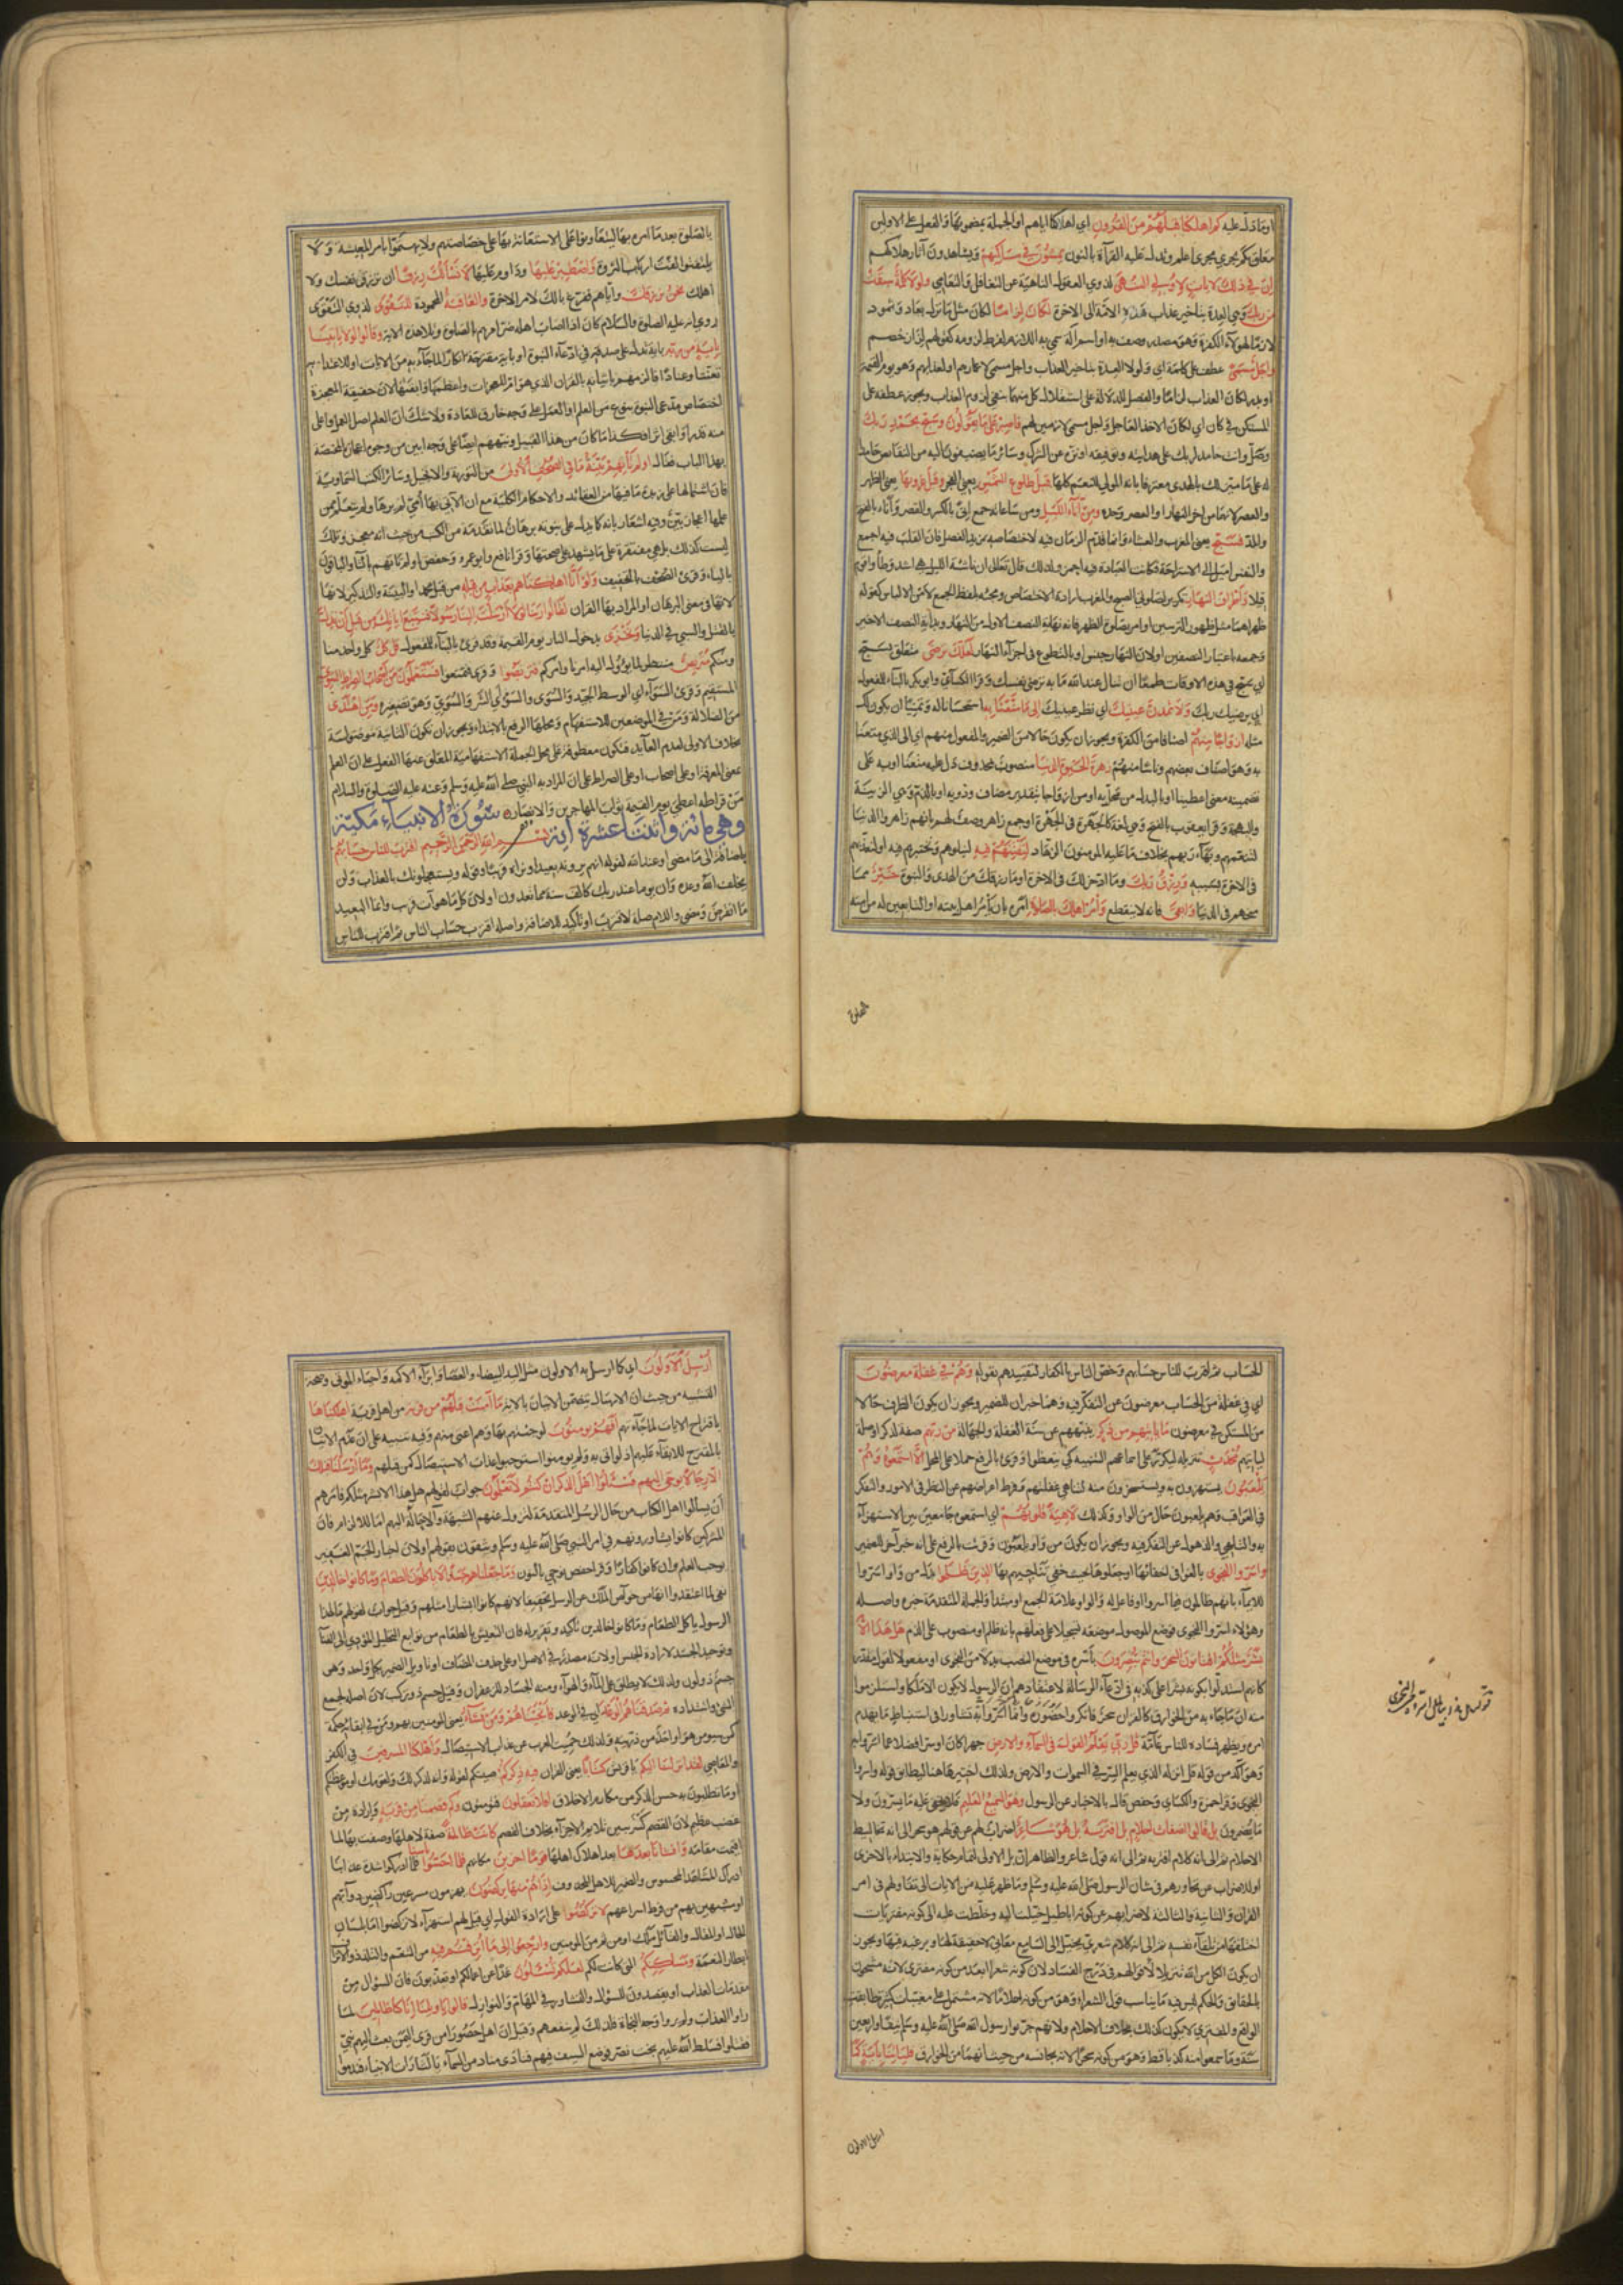 او ما دل عليه كم اهلكنا قبلهم من القرون اي اهلاكنا اياهم او الجملة بمضمونها والفعل على الاولين
معلق يجري مجرى اعلم ويدل عليه القرآة بالنون يمشون في مساكنهم ويشاهدون آثار هلاكهم
ان في ذلك لايات لاولي النهى لذوي العقول الناهية عن التغافل والتعامي ولولا كلمة سبقت
من ربك وهي العدة بتأخير عذاب هذه الامة الى الاخرة لكان لزاما لكان مثل ما نزل بعاد وثمود
لازما لهؤلاء الكفرة وهو مصدر وصف به او اسم آلة سمي به اللازم لفرط لزومه كقولهم لزاز خصم
واجل مسمى عطف على كلمة اي ولولا العدة بتاخير العذاب واجل مسمى لاعمارهم او لعذابهم وهو يوم القيمة
او بدر لكان العذاب لزاما والفصل للدلالة على استقلال كل منهما بنفي لزوم العذاب ويجوز عطفه على
المستكن في كان اي لكان الاخذ العاجل واجل مسمى لازمين لهم فاصبر على ما يقولون وسبح بحمد ربك
وصل وانت حامد لربك على هدايته وتوفيقه او نزهه عن الشرك وسائر ما يضيفون اليه من النقائص حامدا
له على ما ميزك بالهدى معترفا بانه المولى للنعم كلها قبل طلوع الشمس يعني الفجر وقبل غروبها يعني الظهر
والعصر لانهما من اخر النهار او العصر وحده ومن آناء الليل ومن ساعاته جمع انى بالكسر والقصر وآناء بالفتح
والمد فسبح يعني المغرب والعشاء وانما قدم الزمان فيه لاختصاصه بمزيد الفضل فان القلب فيه اجمع
والنفس اميل الى الاستراحة فكانت العبادة فيه احمز ولذلك قال تعالى ان ناشئة الليل هي اشد وطأ واقوم
قيلا واطراف النهار تكرير لصلوتي الصبح والمغرب ارادة الاختصاص ومجيئه بلفظ الجمع لامن الالباس كقوله
ظهراهما مثل ظهور الترسين او امر بصلوة الظهر فانه نهاية النصف الاول من النهار وبداية النصف الاخير
وجمعه باعتبار النصفين او لان النهار جنس او بالتطوع في اجزاء النهار لعلك ترضى متعلق بسبح
اي سبح في هذه الاوقات طمعا ان تنال عند الله ما به ترضى نفسك وقرأ الكسائي وابو بكر بالبناء للمفعول
اي يرضيك ربك ولا تمدن عينيك اي نظر عينيك الى ما متعنا به استحسانا له وتمنيا ان يكون لك
مثله ازواجا منهم اصنافا من الكفرة ويجوز ان يكون حالا من الضمير والمفعول منهم اي الى الذي متعنا
به وهو اصناف بعضهم وناسا منهم زهرة الحيوة الدنيا منصوب بمحذوف دل عليه متعنا او به على
تضمينه معنى اعطينا او بالبدل من محل به او من ازواجا بتقدير مضاف ودونه او بالذم وهي الزينة
والبهجة وقرأ يعقوب بالفتح وهي لغة كالجهرة في الجهرة او جمع زاهر وصف لهم بانهم زاهروا الدنيا
لتنعمهم وبهاء زيهم بخلاف ما عليه المؤمنون الزهاد لنفتنهم فيه لنبلوهم ونختبرهم فيه او لنعذبهم
في الاخرة بسببه ورزق ربك وما ادخر لك في الاخرة او ما رزقك من الهدى والنبوة خير مما
منحهم في الدنيا وابقى فانه لا ينقطع وأمر اهلك بالصلوة امره بان يأمر اهل بيته او التابعين له من امته
بالصلوة
بالصلوة بعدما امره بها ليتعاونوا على الاستعانة بها على خصاصتهم ولا يهتموا بامر المعيشة ولا
يلتفتوا لفت ارباب الثروة واصطبر عليها وداوم عليها لا نسألك رزقا ان ترزق نفسك ولا
اهلك نحن نرزقك واياهم ففرغ بالك لامر الاخرة والعاقبة المحمودة للتقوى لذوي التقوى
روي انه عليه الصلوة والسلام كان اذا اصاب اهله ضر امرهم بالصلوة وتلا هذه الاية وقالوا لولا يأتينا
باية من ربه باية تدل على صدقه في ادعاء النبوة او باية مقترحة انكارا لما جاء به من الايات او للاعتداد به
تعنتا وعنادا فالزمهم باتيانه بالقرآن الذي هو ام المعجزات واعظمها وابقاها لان حقيقة المعجزة
اختصاص مدعي النبوة بنوع من العلم او العمل على وجه خارق للعادة ولا شك ان العلم اصل العمل واعلى
منه قدرا وابقى اثرا فكذا ما كان من هذا القبيل ونبههم ايضا على وجه ابين من وجوه اعجازه المختصة
بهذا الباب فقال اولم تأتهم بينة ما في الصحف الاولى من التورية والانجيل وسائر الكتب السماوية
فان اشتمالها على زبدة ما فيها من العقائد والاحكام الكلية مع ان الآتي بها امي لم يرها ولم يتعلم ممن
علمها اعجاز بين وفيه اشعار بانه كما يدل على نبوته برهان لما تقدمه من الكتب من حيث انه معجز وتلك
ليست كذلك بل هي مفتقرة على ما يشهد على صحتها وقرأ نافع وابو عمرو وحفص اولم تأتهم بالتاء والباقون
بالياء وقرئ الصحف بالتخفيف ولو أنا اهلكناهم بعذاب من قبله من قبل محمد او البينة والتذكير لانها
لانها في معنى البرهان او المراد بها القران لقالوا ربنا لولا ارسلت الينا رسولا فنتبع آياتك من قبل ان نذل
بالقتل والسبي في الدنيا ونخزى بدخول النار يوم القيمة وقد قرئ بالبناء للمفعول قل كل كل واحد منا
ومنكم متربص منتظر لما يؤول اليه امرنا وامركم فتربصوا وقرئ فتمتعوا فستعلمون من اصحاب الصراط السوي
المستقيم وقرئ السواء اي الوسط الجيد والسوءى والسوء اي الشر والسوي وهو تصغيره ومن اهتدى
من الضلالة ومن في الموضعين للاستفهام ومحلها الرفع بالابتداء ويجوز ان تكون الثانية موصولة
بخلاف الاولى لعدم العائد فتكون معطوفة على محل الجملة الاستفهامية المعلق عنها الفعل على ان العلم
بمعنى المعرفة او على اصحاب او على الصراط على ان المراد به النبي صلى الله عليه وسلم وعنه عليه الصلوة والسلام
من قرأ طه اعطي يوم القيمة ثواب المهاجرين والانصار سورة الانبياء مكية
وهي مائة واثنتا عشرة آية بسم الله الرحمن الرحيم اقترب للناس حسابهم
بالاضافة الى ما مضى او عند الله لقوله انهم يرونه بعيدا ونراه قريبا وقوله ويستعجلونك بالعذاب ولن
يخلف الله وعده وان يوما عند ربك كالف سنة مما تعدون او لان كل ما هو آت قريب وانما البعيد
ما انقرض ومضى واللام صلة لاقترب او تأكيد للاضافة واصله اقترب حساب الناس ثم اقترب للناس
الحساب ثم اقترب للناس حسابهم وخص الناس بالكفار لتقييدهم بقوله وهم في غفلة معرضون
اي في غفلة من الحساب معرضون عن التفكر فيه وهما خبران للضمير ويجوز ان يكون الظرف حالا
من المستكن في معرضون ما يأتيهم من ذكر ينبههم عن سنة الغفلة والجهالة من ربهم صفة لذكر او صلة
ليأتيهم محدث تنزيله ليكرر على اسماعهم التنبيه كي يتعظوا وقرئ بالرفع حملا على المحل الا استمعوه وهم
يلعبون يستهزؤن به ويستسخرون منه لتناهي غفلتهم وفرط اعراضهم عن النظر في الامور والتفكر
في العواقب وهم يلعبون حال من الواو وكذلك لاهية قلوبهم اي استمعوه جامعين بين الاستهزاء
به والتلهي والذهول عن التفكر فيه ويجوز ان يكون من واو يلعبون وقرئت بالرفع على انه خبر آخر للضمير
واسروا النجوى بالغوا في اخفائها او جعلوها بحيث خفي تناجيهم بها الذين ظلموا بدل من واو اسروا
للايماء بانهم ظالمون فيما اسروا او فاعل له والواو علامة الجمع او مبتدأ والجملة المتقدمة خبره واصله
وهؤلاء اسروا النجوى فوضع الموصول موضعه تسجيلا على فعلهم بانه ظلم او منصوب على الذم هل هذا الا
بشر مثلكم افتأتون السحر وانتم تبصرون بأسره في موضع النصب بدلا من النجوى او مفعولا لقول مقدر
كانهم استدلوا بكونه بشرا على كذبه في ادعاء الرسالة لاعتقادهم ان الرسول لا يكون الا ملكا واستلزموا
منه ان ما جاء به من الخوارق كالقرآن سحر فانكروا حضوره وانما اسروا به تشاورا في استنباط ما يهدم
امره ويظهر فساده للناس عامة قل ربي يعلم القول في السماء والارض جهرا كان او سرا فضلا عما اسروا به
وهو آكد من قوله قل انزله الذي يعلم السر في السموات والارض ولذلك اختير هاهنا ليطابق قوله واسروا
النجوى وقرأ حمزة والكسائي وحفص قال بالاخبار عن الرسول وهو السميع العليم فلا يخفى عليه ما يسرون ولا
ما يضمرون بل قالوا اضغاث احلام بل افتريه بل هو شاعر اضراب لهم عن قولهم هو سحر الى انه تخاليط
الاحلام ثم الى انه كلام افتريه ثم الى انه قول شاعر والظاهر ان بل الاولى لتمام حكاية والابتداء باخرى
او للاضراب عن تحاورهم في شان الرسول صلى الله عليه وسلم وما ظهر عليه من الايات الى تقاولهم في امر
القرآن والثانية والثالثة لاضرابهم عن كونه اباطيل خيلت اليه وخلطت عليه الى كونه مفتريات
اختلقها من تلقاء نفسه ثم الى انه كلام شعري يخيل الى السامع معاني لا حقيقة لها ويرغبه فيها ويجوز
ان يكون الكل من الله تنزيلا لاقوالهم في درج الفساد لان كونه شعرا ابعد من كونه مفترى لانه مشحون
بالحقائق والحكم ليس فيه ما يناسب قول الشعراء وهو من كونه احلاما لانه مشتمل على مغيبات كثيرة طابقت
الواقع والمفترى لا يكون كذلك بخلاف الاحلام ولانهم جربوا رسول الله صلى الله عليه وسلم نيفا واربعين
سنة وما سمعوا منه كذبا قط وهو من كونه سحرا لانه يجانسه من حيث انهما من الخوارق فليأتنا باية كما
ارسل الاولون
ارسل الاولون اي كما ارسل به الاولون مثل اليد البيضاء والعصا وابراء الاكمه واحياء الموتى وصحة
التشبيه من حيث ان الارسال يتضمن الاتيان بالاية ما آمنت قبلهم من قرية من اهل قرية اهلكناها
باقتراح الايات لما جاءتهم افهم يؤمنون لو جئتهم بها وهم اعتى منهم وفيه تنبيه على ان عدم الاتيان
بالمقترح للابقاء عليهم اذ لو اتى به ولم يؤمنوا استوجبوا عذاب الاستيصال كمن قبلهم وما ارسلنا قبلك
الا رجالا يوحى اليهم فسئلوا اهل الذكر ان كنتم لا تعلمون جواب لقولهم هل هذا الا بشر مثلكم فامرهم
ان يسألوا اهل الكتاب من حال الرسل المتقدمة لتزول عنهم الشبهة والاحالة اليهم اما للالزام فان
المشركين كانوا يشاورونهم في امر النبي صلى الله عليه وسلم ويثقون بقولهم او لان اخبار الجم الغفير
يوجب العلم وان كانوا كفارا وقرأ حفص نوحي بالنون وما جعلناهم جسدا لا يأكلون الطعام وما كانوا خالدين
نفي لما اعتقدوا انها من خواص الملك عن الرسل تحقيقا لانهم كانوا ابشارا مثلهم وقيل جواب لقولهم ما لهذا
الرسول يأكل الطعام وما كانوا خالدين تأكيد وتقرير له فان التعيش بالطعام من توابع التحليل المؤدي الى الفناء
وتوحيد الجسد لارادة الجنس او لانه مصدر في الاصل او على حذف المضاف او تاويل الضمير بكل واحد وهو
جسم ذو لون ولذلك لا يطلق على الماء والهواء ومنه الجساد للزعفران وقيل جسم ذو تركيب لان اصله لجمع
الشيء واشتداده ثم صدقناهم الوعد اي في الوعد فانجيناهم ومن نشاء يعني المؤمنين بهم ومن في ابقائه حكمة
كمن سيؤمن هو او احد من ذريته ولذلك حميت العرب عن عذاب الاستيصال واهلكنا المسرفين في الكفر
والمعاصي لقد انزلنا اليكم يا قريش كتابا يعني القران فيه ذكركم صيتكم لقوله وانه لذكر لك ولقومك او موعظتكم
او ما تطلبون به حسن الذكر من مكارم الاخلاق افلا تعقلون فتؤمنون وكم قصمنا من قرية واردة من
غضب عظيم لان القصم كسر يبين تلاؤم الاجزاء بخلاف الفصم كانت ظالمة صفة لاهلها وصفت بها لما
اقيمت مقامه وانشأنا بعدها بعد اهلاك اهلها قوما آخرين مكانهم فلما احسوا بأسنا فلما ادركوا شدة عذابنا
ادراك المشاهد المحسوس والضمير للاهل المحذوف اذا هم منها يركضون يهربون مسرعين راكضين دوابهم
او مشبهين بهم من فرط اسراعهم لا تركضوا على ارادة القول اي قيل لهم استهزاء لا تركضوا اما بلسان
الحال او المقال والقائل ملك او من ثم من المؤمنين وارجعوا الى ما اترفتم فيه من التنعم والتلذذ والاتراف
ابطار النعمة ومساكنكم التي كانت لكم لعلكم تسئلون غدا عن اعمالكم او تعذبون فان السؤال من
مقدمات العذاب او تقصدون للسؤال والتشاور في المهام والنوازل قالوا يا ويلنا انا كنا ظالمين لما
رأوا العذاب ولم يروا وجه النجاة فلذلك لم ينفعهم وقيل ان اهل حضور من قرى اليمن بعث اليهم نبي
فقتلوه فسلط الله عليهم بخت نصر فوضع السيف فيهم فنادى مناد من السماء يا لثارات الانبياء فندموا